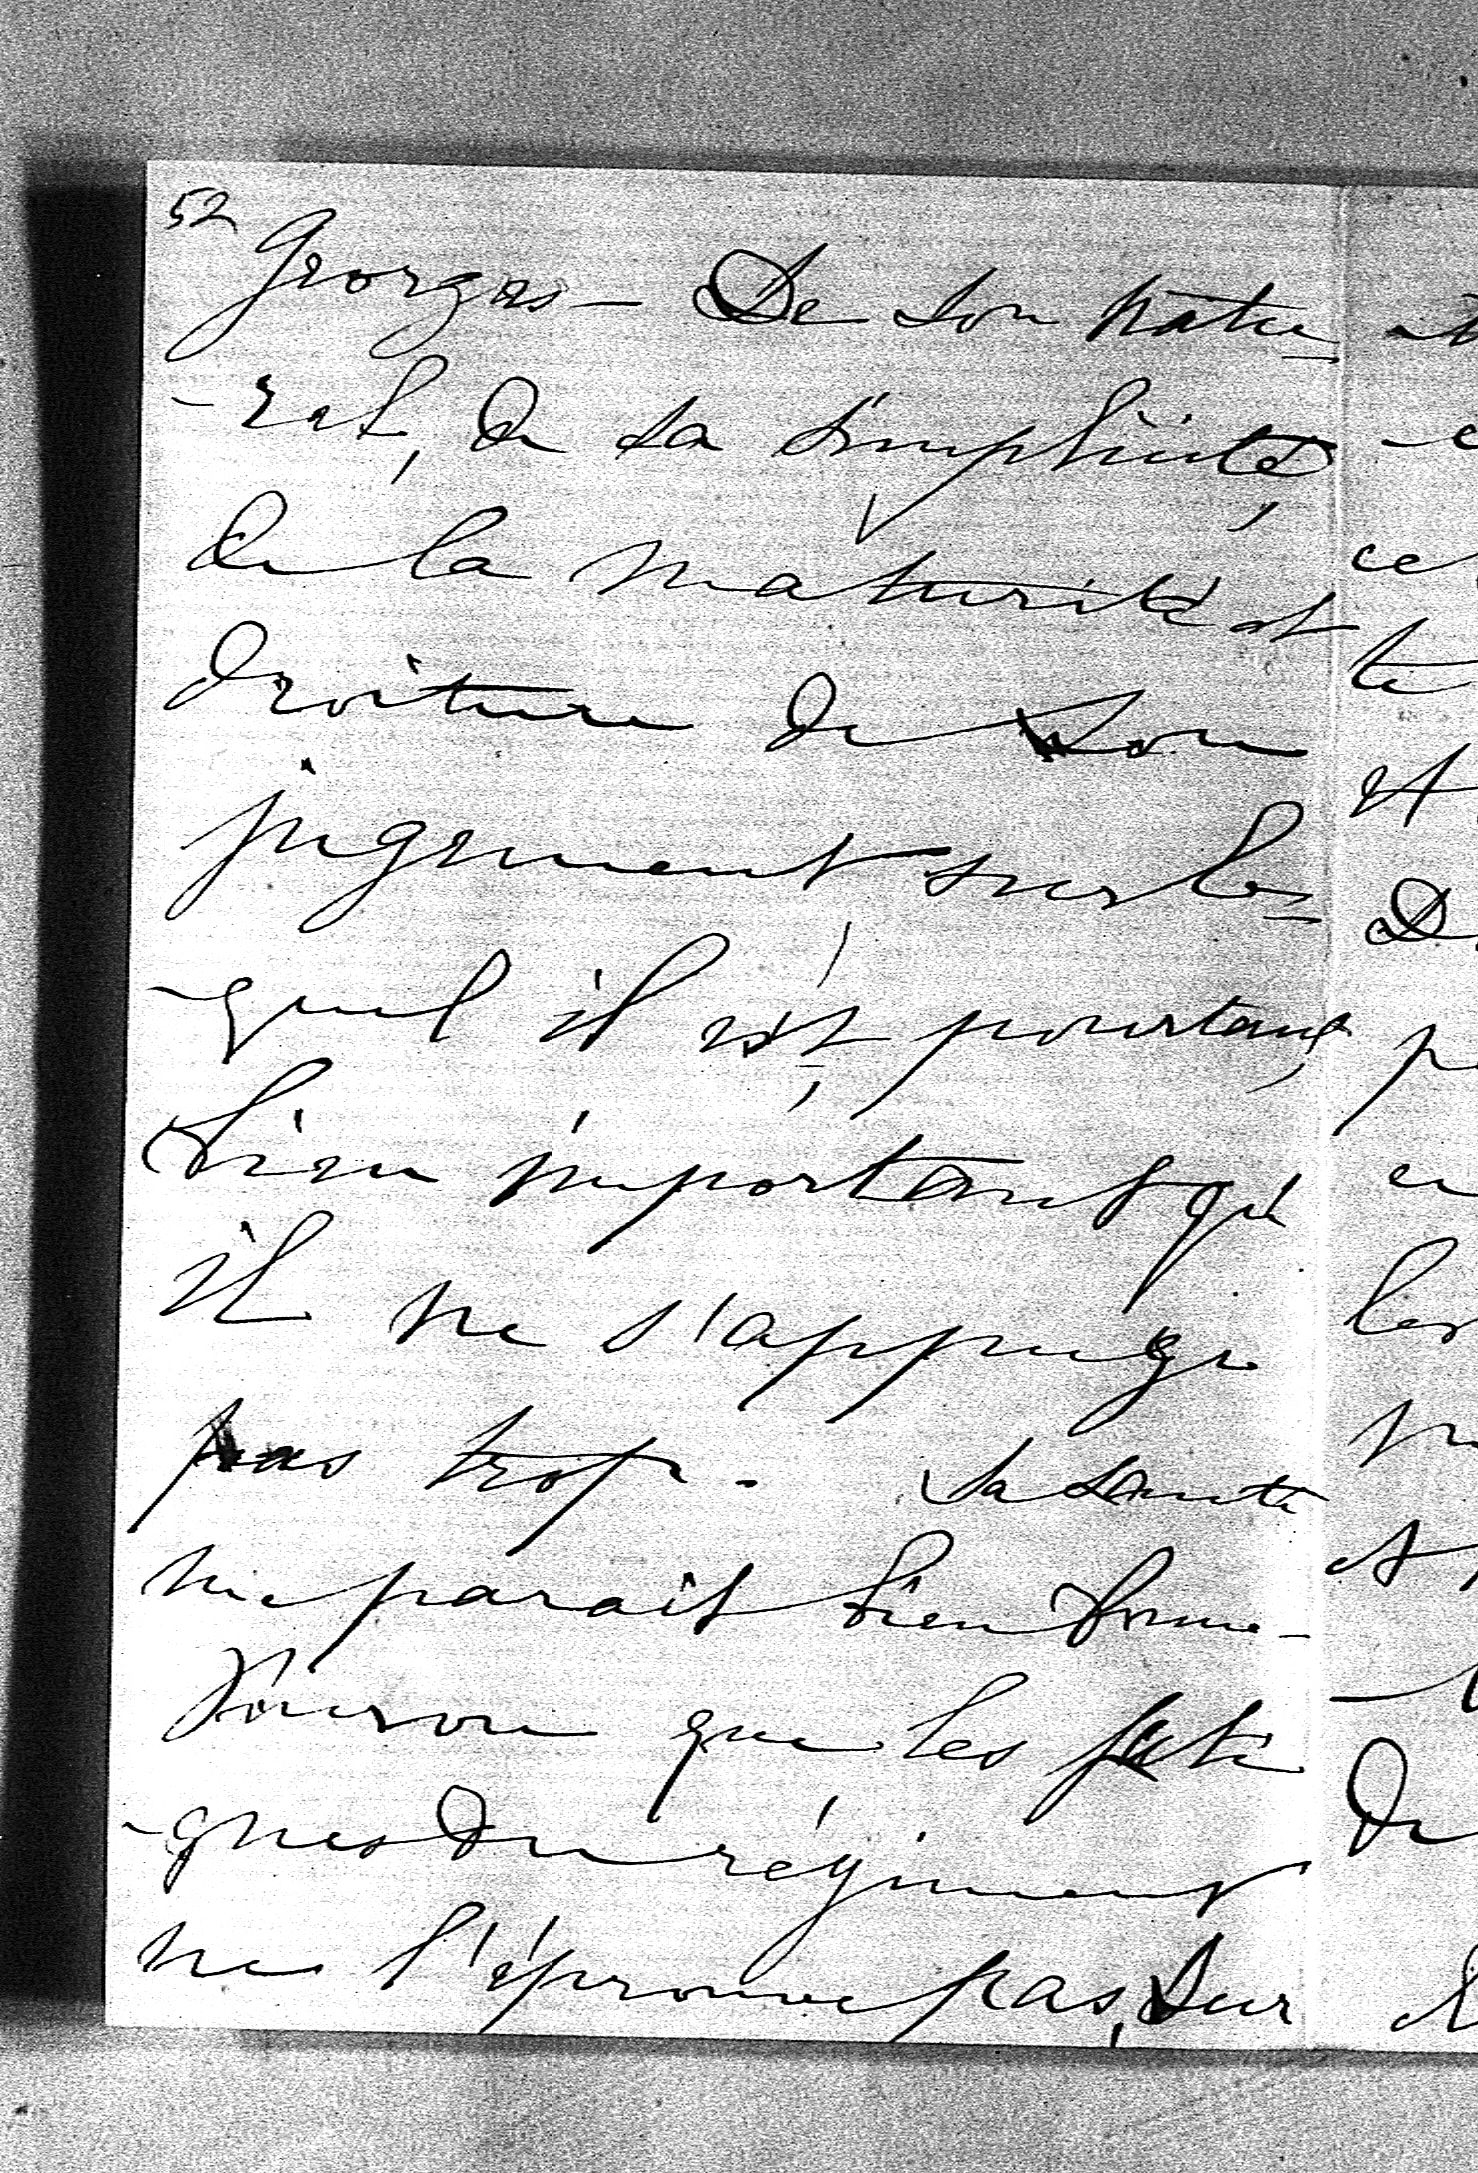 52
Georges — De son natu-
-rel, de sa simplicité,
de la maturité et
droiture de son
jugement sur le-
-quel il est, pourtant,
bien important qu'
il ne s'appuye
pas trop. Sa santé
me parait bien bonne -
Pourvu que les fati
-gues du régiment
ne l'éprouve pas, sur